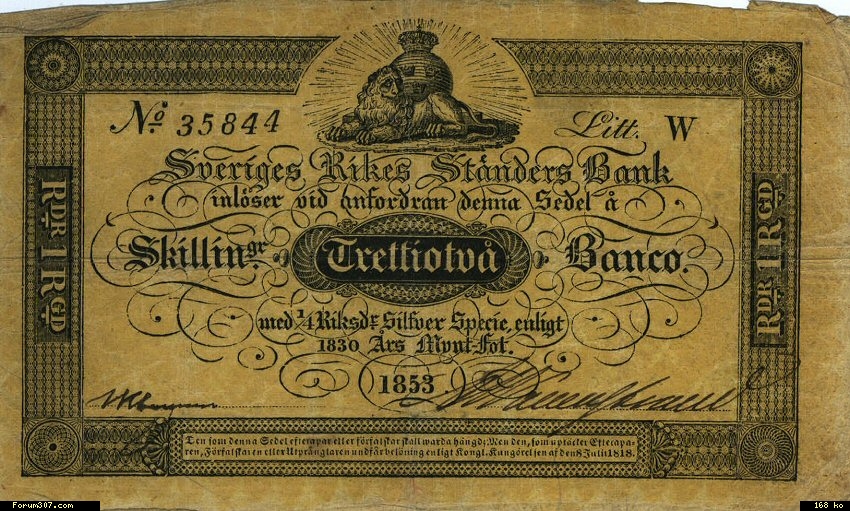 No. 35844
Litt. W
Sveriges Rikes Ständers Bank
inlöser vid anfordran denna Sedel å
Skillingr. Trettiotvå Banco.
med 1/4 Riksdr. Silfver Specie, enligt
1830 Års Mynt-Fot.
1853
RDR 1 R GD
RDR 1 R GD
Den som denna Sedel efterapar eller förfalskar skall warda hängd; Men den, som uptäcker Efterapa-
ren, Förfalskaren eller Utprånglaren undfår belöning enligt Kongl. Kungörelsen af den 8 Julii 1818.
Forum307.com
168 ko